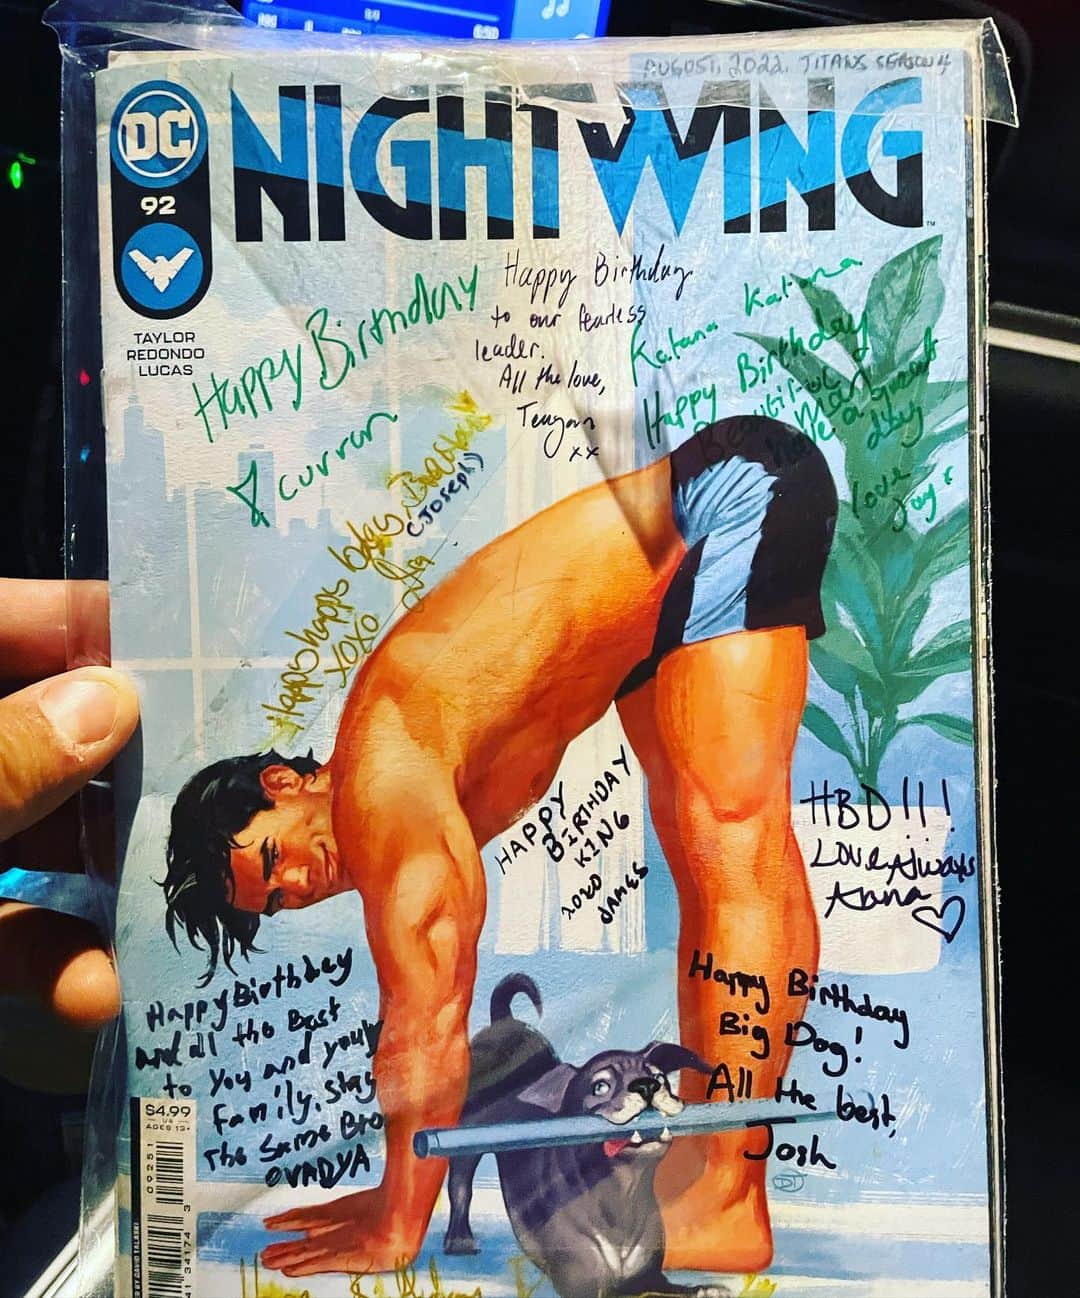 AUGUST, 2022. TITANS SEASON 4
DC
NIGHTWING
92
TAYLOR
REDONDO
LUCAS
Happy Birthday
curran
Happy Birthday
to our fearless
leader.
All the love,
Teagan
xx
Katana Katana
Happy Birthday
Beautiful Man
have a great
day
love
Jay
Happy happy bday, Brenton
XOXO
(Joseph)
HAPPY
BIRTHDAY
KING
XOXO
JAMES
HBD!!!
Love Always
Anna
Happy Birthday
and all the Best
to You and your
family. Stay
The Same Bro
OVADYA
Happy Birthday
Big Dog!
All the best,
Josh
DT
$4.99
US
AGES 13+
09251
34174